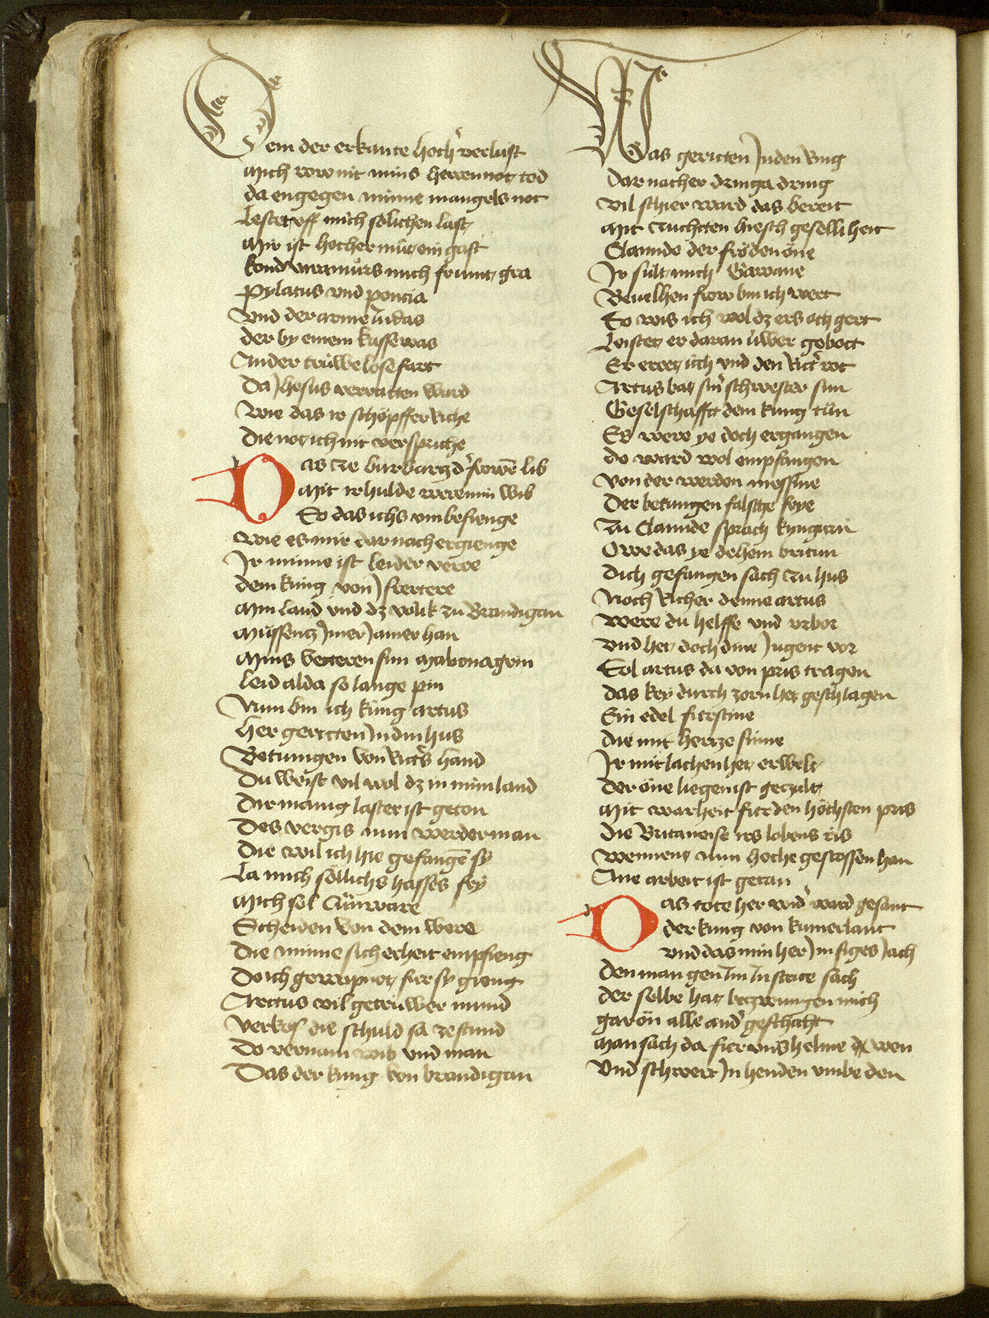 Dem der erkante hoch verlust
Mich row nit mins herren not tod
da engegen minne mangels not
Lestet vff mich sölichen last
Mir ist hocher mut ein gast
kond viramurs mich frumt gra
Pylatus vnd poncia
Vnd der arme iudas
der by einem kusse was
An der trüwe lose fart
Da Jhesus verratten ward
Wie das ir schöpffer riche
Die not ich nit verspriche
Das ze burbarg der frowen lib
Mit ir hulde were min wib
So das ichs vmbefienge
Wie es mir dar nach ergienge
Ir minne ist leider verre
dem küng von Jsertere
Min land vnd dz volk zu Brandigan
Müssentz Jmer Jamer han
Mins vetteren sun Mabonagrin
Leid alda so lange pin
Nun bin ich küng artus
Her geritten Jn din hus
Betungen von Ritters hand
Du weist vil wol dz in min land
Dir manig laster ist geton
Des vergis nun werder man
Die wil ich hie gefangen sy
La mich söllichs hasses fry
Mich sol Cunware
Scheiden von dem were
Die minne sicherheit empfieng
Do ich gewapnot fier sy gieng
Arttus vil getrüwer mund
Verkos die schuld sa zestund
Do vernam wib vnd man
Das der küng von brandigan
Was geritten Jn den Ring
Dar nacher dringa dring
Vil schier ward das bereit
Mit Zuchten hiesch gesellikeit
Clamide der fröden öne
Ir sült mich Gawane
Beuelhen frow bin ich wert
So wis ich wol dz ers och gert
Leistet er daran üwer gebott
Er eret üch vnd den Ritter rot
Artus bat sin schwester sun
Geselschafft dem küng tün
Es were ye doch ergangen
do ward wol empfangen
Von der werden messine
Der betungen falsche frye
Zu Clamide sprach kyngrun
Owe das ye dehein britun
Dich gefangen sach Zu hus
Noch Richer denne artus
Were du helffe vnd vrbor
vnd het doch dine Jugent vor
Sol artus da von pris tragen
das key durch zorn het geschlagen
Ein edel fierstine
die mit hertze sinne
Ir mit lachen het erwelt
Der öne liegen ist gezalt
Mit warheit fier den höchsten pris
die Britaneise irs lobens ris
Wennent nun hoche gestossen han
Ane arbeit ist getan
Das tote her wider ward gesant
der küng von kumerlant
vnd das min her Jm siges Jach
Den man gen Jm In strite sach
der selbe hat bezwungen mich
gar ön alle ander geschicht
Man sach da fier vns helme wen
Vnd schwert Jn henden vmbe den